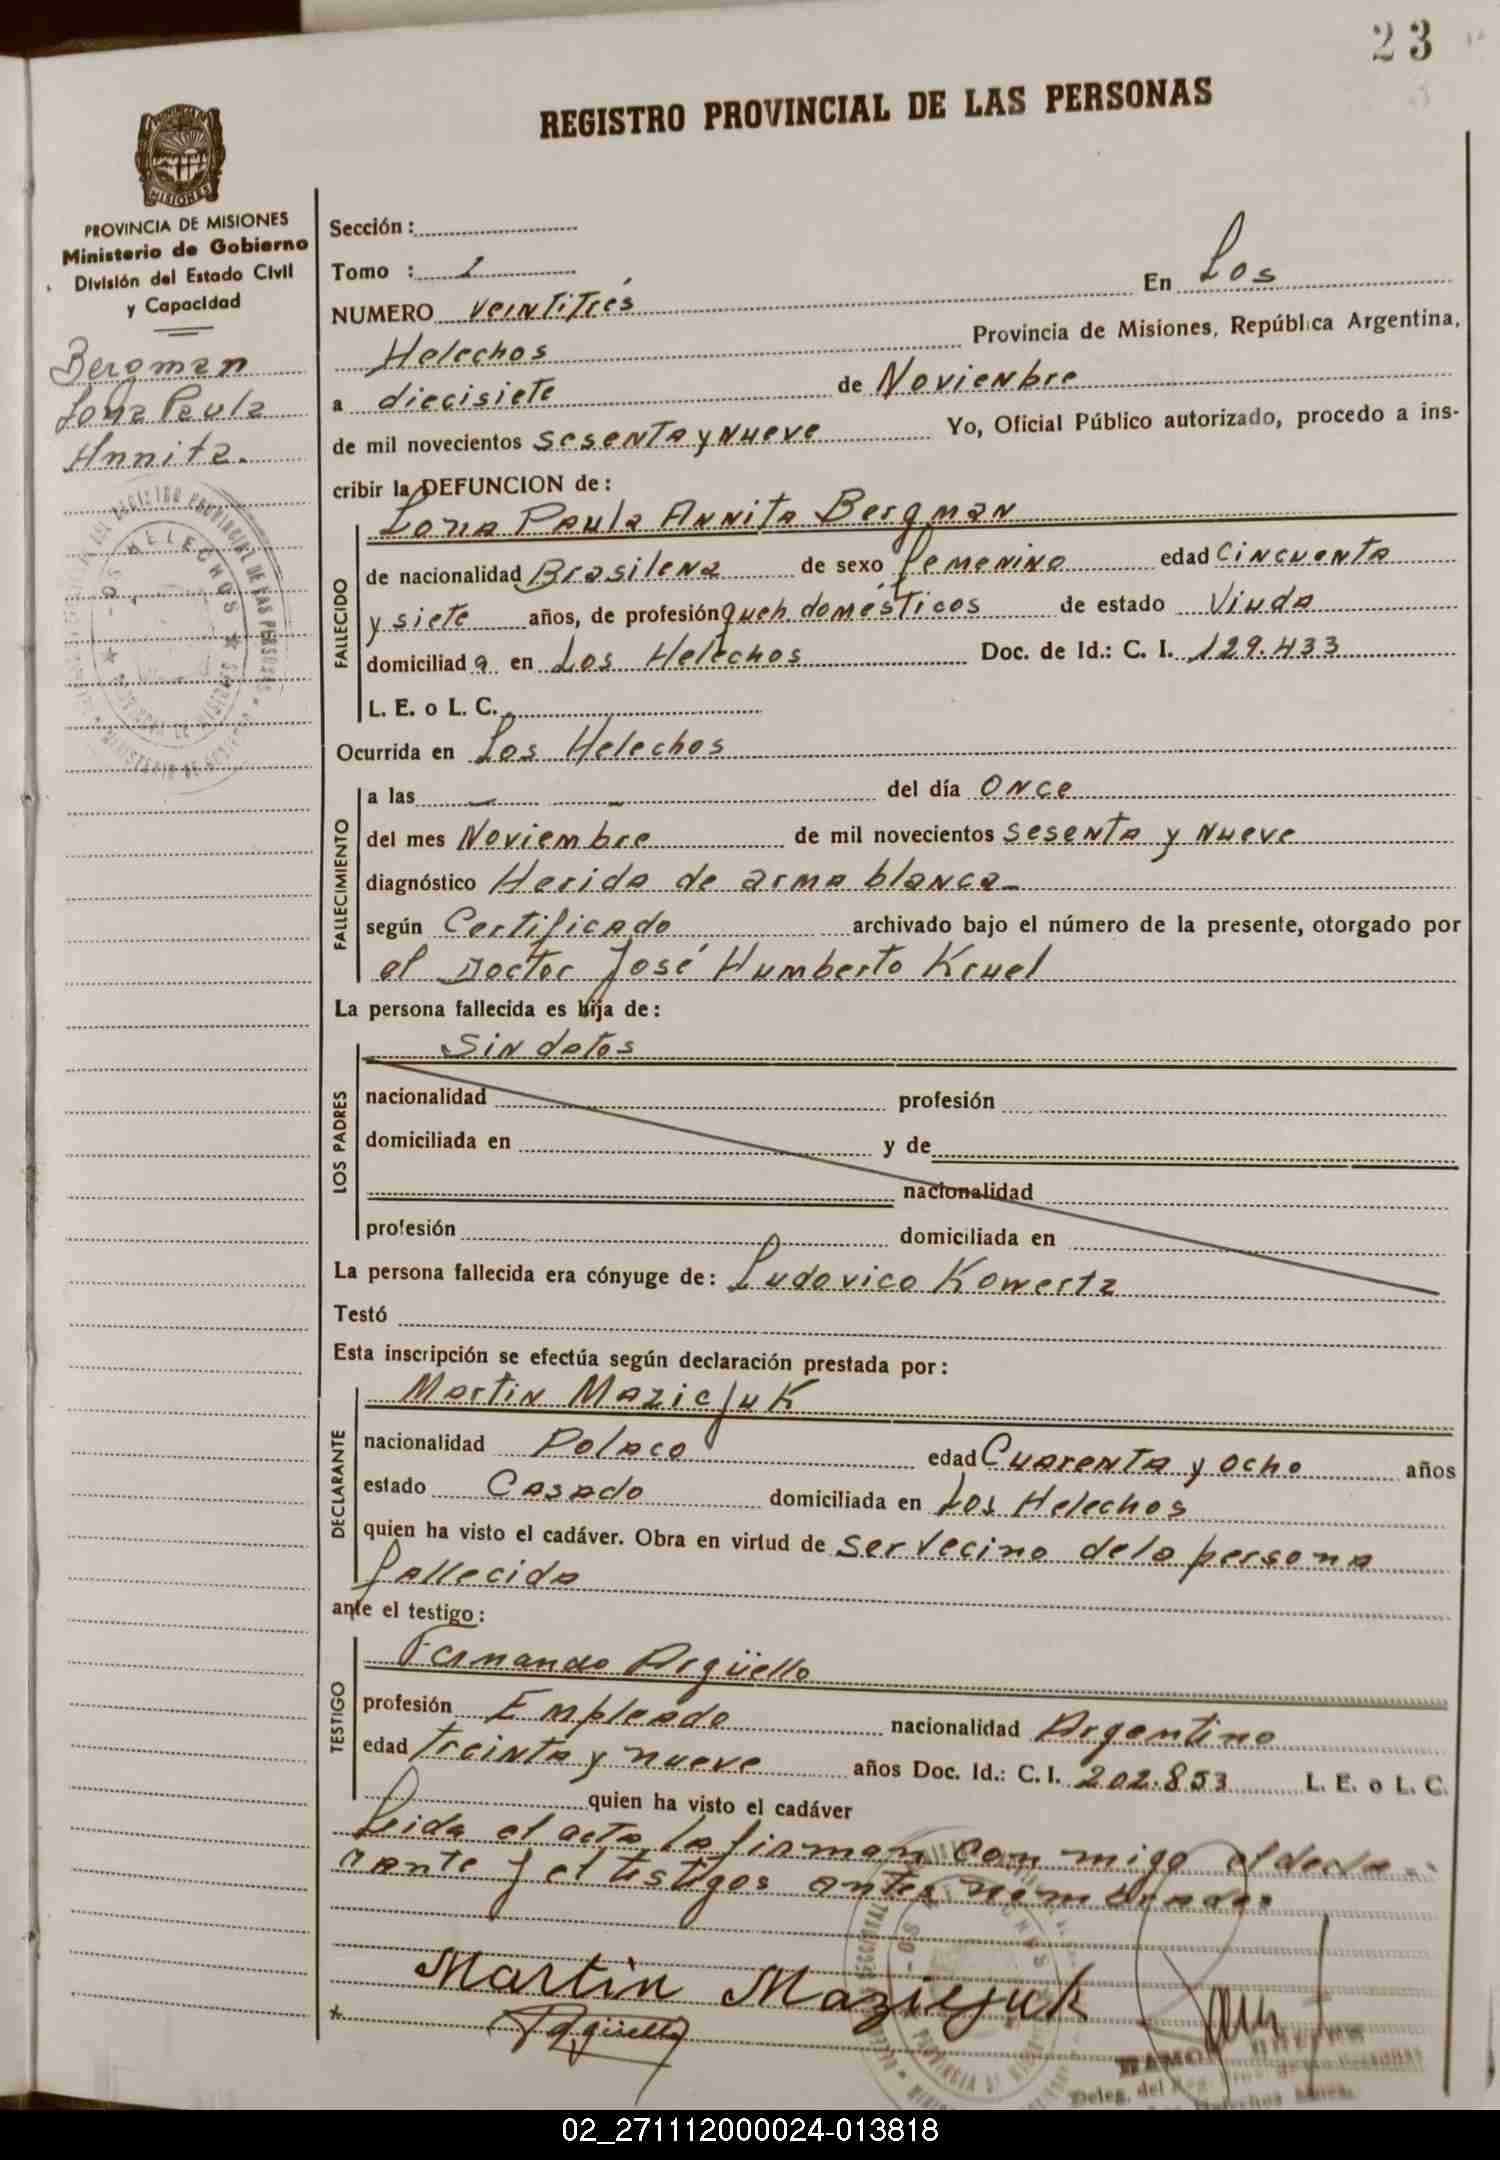 23
REGISTRO PROVINCIAL DE LAS PERSONAS
MISIONES
PROVINCIA DE MISIONES
Ministerio de Gobierno
División del Estado Civil
y Capacidad
Bergman
Lona Paula
Annita.
Sección:
Tomo : 1
NUMERO veintitrés En Los
Helechos Provincia de Misiones, República Argentina,
a diecisiete de Novienbre
de mil novecientos sesenta y nueve Yo, Oficial Público autorizado, procedo a ins-
cribir la DEFUNCION de:
Lona Paula Annita Bergman
FALLECIDO
de nacionalidad Brasilena de sexo femenino edad Cincuenta
y siete años, de profesión queh. domésticos de estado Viuda
domiciliada en Los Helechos Doc. de Id.: C. I. 129.433
L. E. o L. C.
Ocurrida en Los Helechos
FALLECIMIENTO
a las — — del día once
del mes Noviembre de mil novecientos sesenta y nueve
diagnóstico Herida de arma blanca
según Certificado archivado bajo el número de la presente, otorgado por
el Doctor José Humberto Kruel
La persona fallecida es hija de:
LOS PADRES
Sin datos
nacionalidad profesión
domiciliada en y de
nacionalidad
profesión domiciliada en
La persona fallecida era cónyuge de: Ludovico Kowertz
Testó
Esta inscripción se efectúa según declaración prestada por:
DECLARANTE
Martin Maziejuk
nacionalidad Polaco edad Cuarenta y ocho años
estado Casado domiciliada en Los Helechos
quien ha visto el cadáver. Obra en virtud de ser vecino de la persona
fallecida
ante el testigo:
TESTIGO
Fernando Argüello
profesión Empleado nacionalidad Argentino
edad treinta y nueve años Doc. Id.: C. I. 202.853 L. E. o L. C.
quien ha visto el cadáver
Leida el acta la firman con migo el decla
rante y el testigos antes nombrados
Martin Maziejuk
Argüello
*
02_271112000024-013818